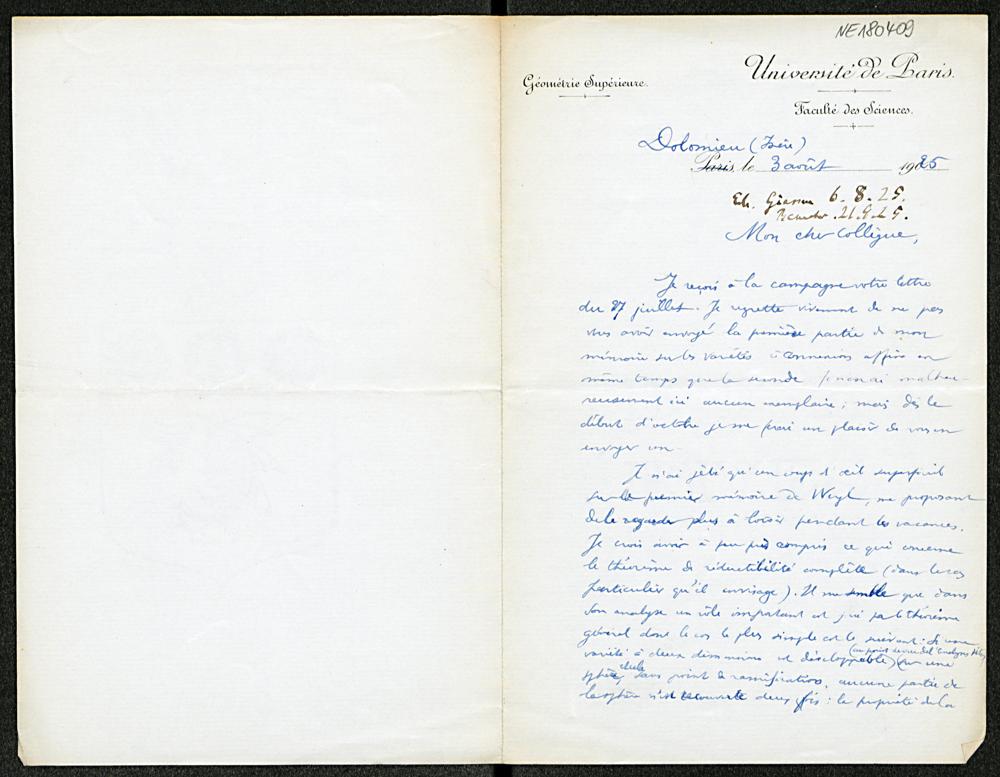 NE180409
Université de Paris.
Géométrie Supérieure.
Faculté des Sciences.
Dolomieu (Isère)
Paris, le 3 août 1925
6.8.25.
21.9.25.
Mon cher Collègue,
Je reçois à la campagne votre lettre
du 27 juillet. Je regrette vivement de ne pas
vous avoir envoyé la première partie de mon
mémoire sur les variétés à connexion affine en
même temps que la seconde. Je n'en ai malheu-
reusement ici aucun exemplaire ; mais dès le
début d'octobre je me ferai un plaisir de vous en
envoyer un.
Je n'ai jeté qu'un coup d'œil superficiel
sur le premier mémoire de Weyl, me proposant
de le regarder plus à loisir pendant les vacances.
Je crois avoir à peu près compris ce qui concerne
le théorème de réductibilité complète (dans le cas
particulier qu'il envisage). Il me semble que dans
son analyse un rôle important est joué par le théorème
général dont le cas le plus simple est le suivant : Si une
(au point de vue de l'Analysis situs)
variété à deux dimensions est développable sur une
sphère, sans point de ramification, aucune partie de
la sphère n'est recouverte deux fois : la propriété de la